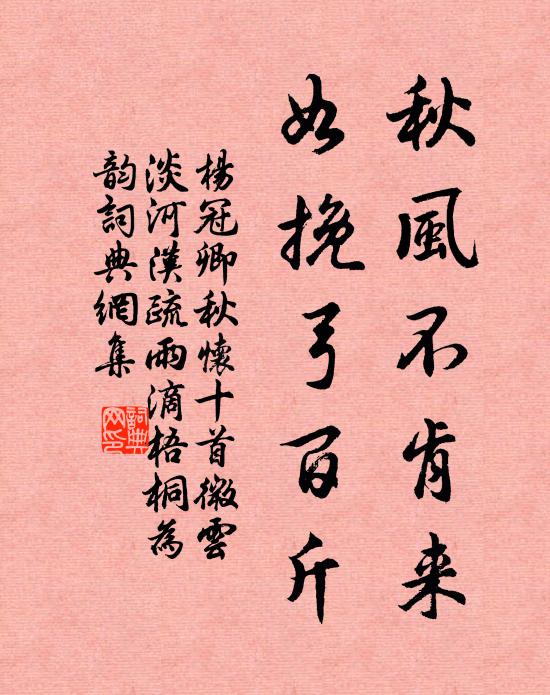 秋風不肯来
如挽弓百斤
楊冠卿秋懷十首微雲
淡河漢疏雨滴梧桐為
韵詞典網集
詞典
网印